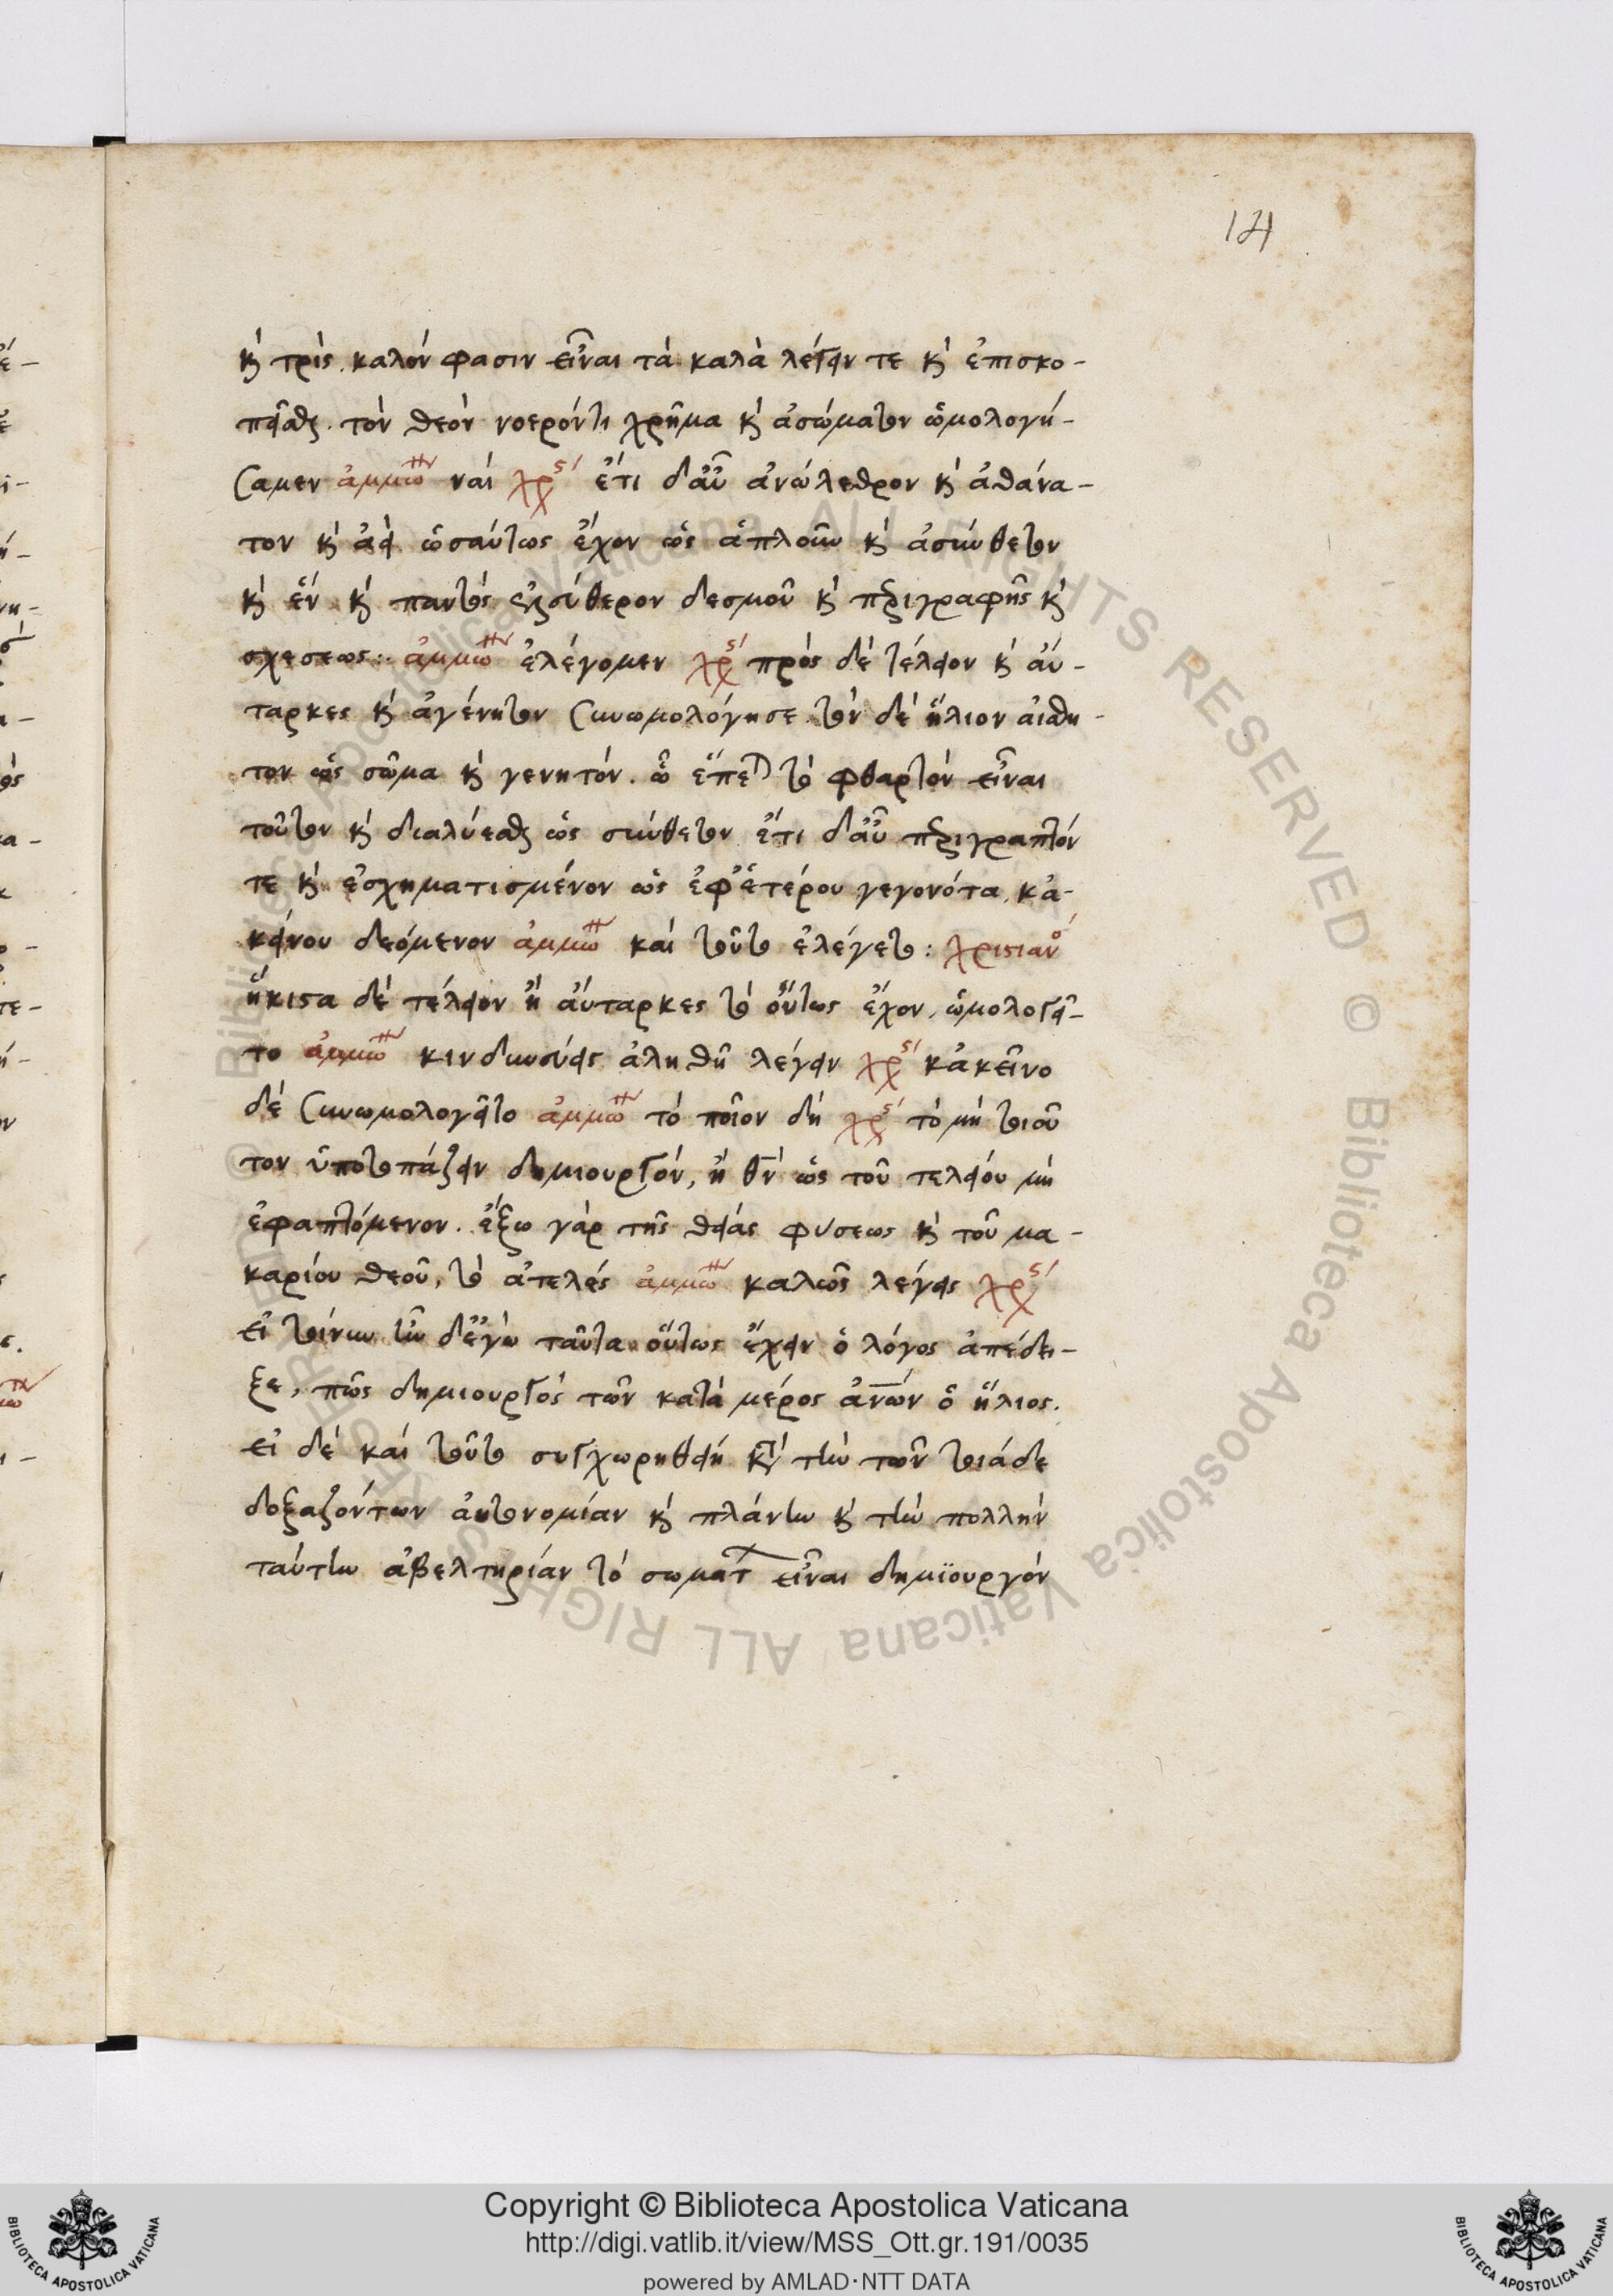 14
κὴ τρὶς. καλόν φασιν εἶναι τὰ καλὰ λέγειν τε κὴ ἐπισκο-
πεῖσθαι. τὸν θεὸν νοερόν τι χρῆμα κὴ ἀσώματον ὡμολογή-
σαμεν ἀμμώ ναί χρ ἔτι δ' αὖ ἀνώλεθρον κὴ ἀθάνα-
τον κὴ ἀεὶ ὡσαύτως ἔχον ὡς ἁπλοῦν κὴ ἀσύνθετον
κὴ ἓν κὴ παντὸς ἐλεύθερον δεσμοῦ κὴ περιγραφῆς κὴ
σχεσεως: ἀμμώ ἐλέγομεν χρ πρὸς δὲ τέλειον κὴ αὔ-
ταρκες κὴ ἀγένητον συνωμολόγησε. τὸν δὲ ἥλιον αἰσθη-
τον ὡς σῶμα κὴ γενητόν. ὧ ἕπεται τὸ φθαρτὸν εἶναι
τοῦτον κὴ διαλύεσθαι ὡς σύνθετον ἔτι δ' αὖ περιγραπτόν
τε κὴ ἐσχηματισμένον ὡς ἐφ' ἑτέρου γεγονότα, κἀ-
κείνου δεόμενον ἀμμώ καὶ τοῦτο ἐλέγετο: χριστιανὸ
ἥκιστα δὲ τέλειον ἢ αὔταρκες τὸ οὕτως ἔχον, ὡμολογεῖ-
το ἀμμώ κινδυνεύεις ἀληθῆ λέγειν χρ κἀκεῖνο
δὲ συνωμολογεῖτο ἀμμώ τὸ ποῖον δή χρ τὸ μὴ τοιοῦ
τον ὑποτοπάζειν δημιουργόν, ἢ θν ὡς τοῦ τελείου μὴ
ἐφαπτόμενον. ἔξω γὰρ τῆς θείας φυσεως κὴ τοῦ μα-
καρίου θεοῦ, τὸ ἀτελές ἀμμώ καλῶς λέγεις χρ
εἰ τοίνυν ὦν δ' ἐγὼ ταῦτα οὕτως ἔχειν ὁ λόγος ἀπέδει-
ξε, πῶς δημιουργὸς τῶν κατὰ μέρος ἀνων ὁ ἥλιος.
εἰ δὲ καὶ τοῦτο συγχωρηθείη κατὰ τὴν τῶν τοιάδε
δοξαζόντων αὐτονομίαν κὴ πλάνην κὴ τὴν πολλὴν
ταύτην ἀβελτηρίαν τὸ σωματ εἶναι δημϊουργόν
Copyright © Biblioteca Apostolica Vaticana
http://digi.vatlib.it/view/MSS_Ott.gr.191/0035
powered by AMLAD·NTT DATA